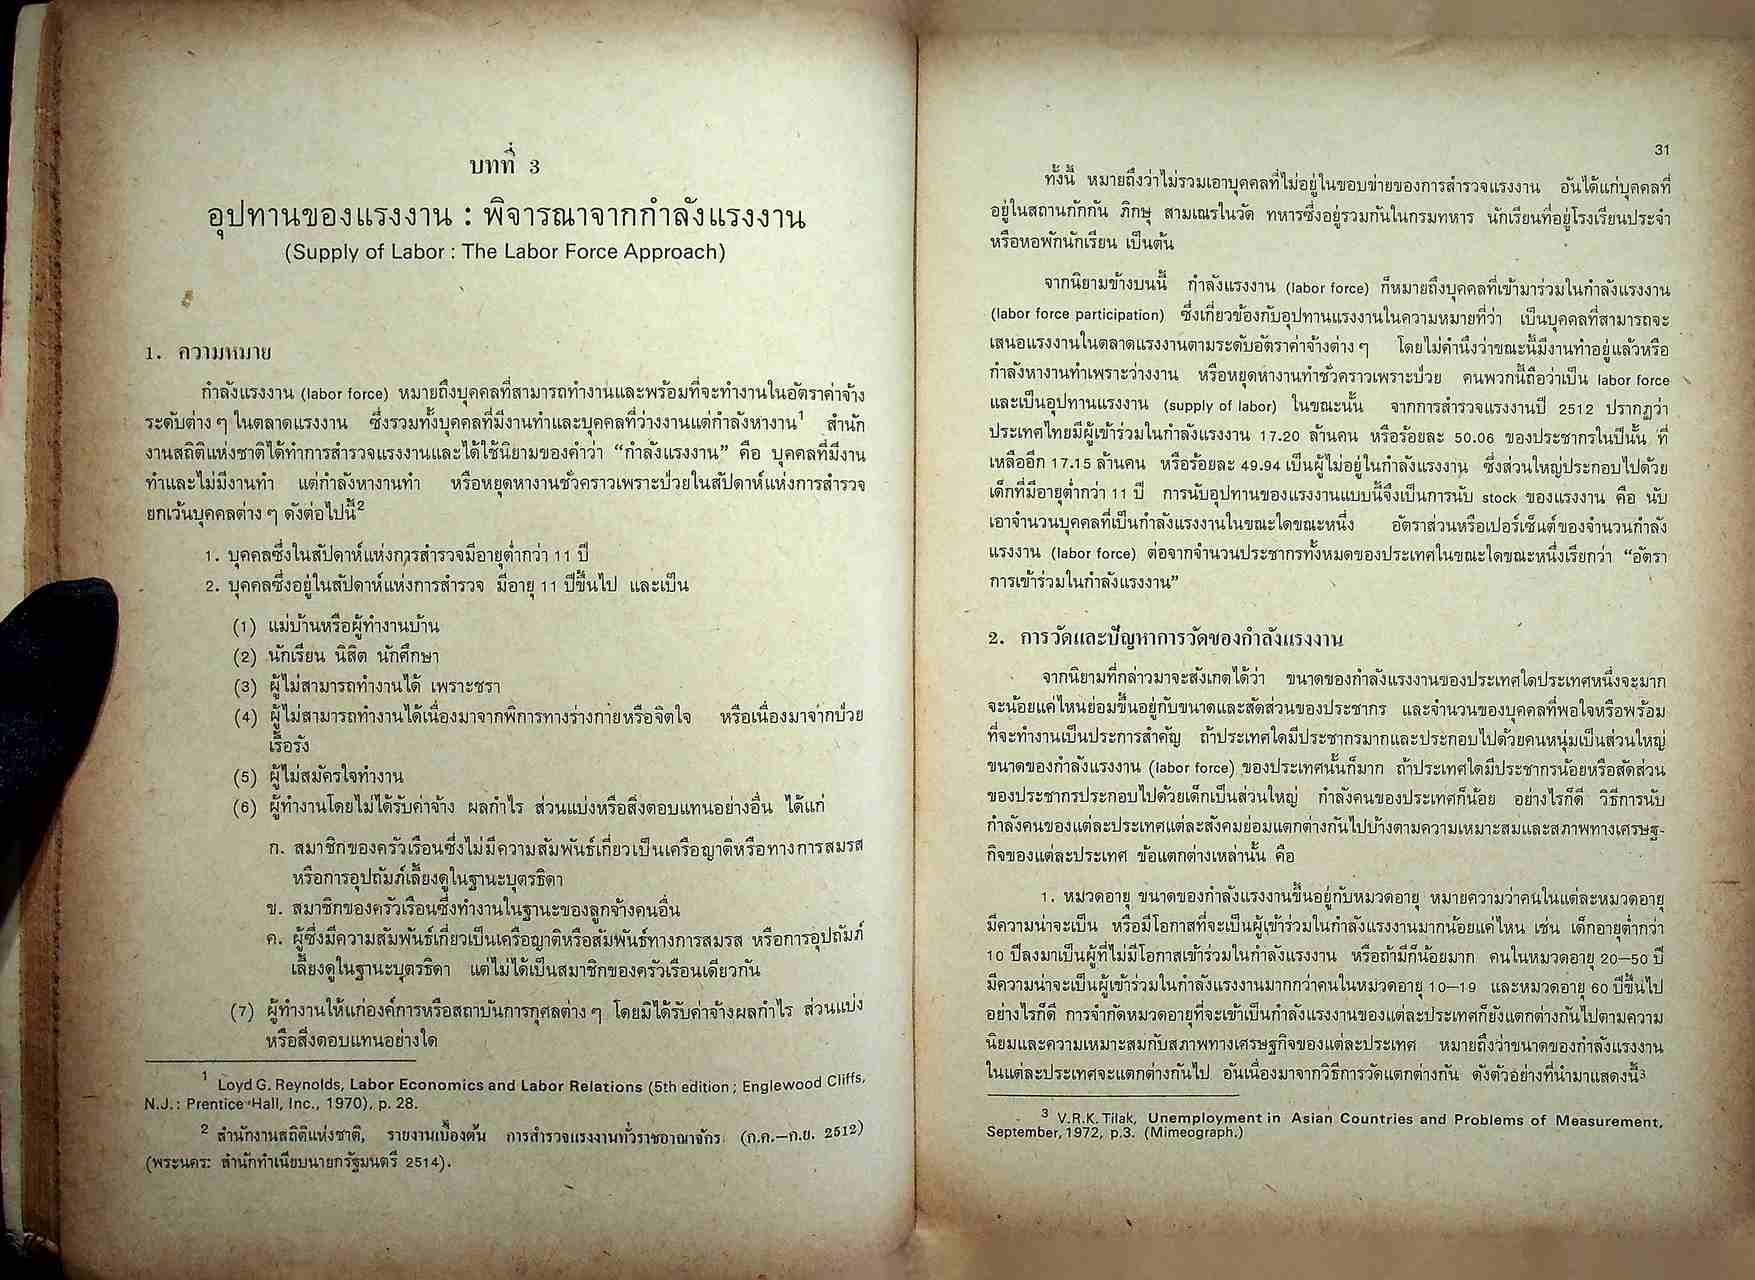 บทที่ 3
อุปทานของแรงงาน : พิจารณาจากกำลังแรงงาน
(Supply of Labor : The Labor Force Approach)
1. ความหมาย
กำลังแรงงาน (labor force) หมายถึงบุคคลที่สามารถทำงานและพร้อมที่จะทำงานในอัตราค่าจ้าง
ระดับต่าง ๆ ในตลาดแรงงาน ซึ่งรวมทั้งบุคคลที่มีงานทำและบุคคลที่ว่างงานแต่กำลังหางาน1 สำนัก
งานสถิติแห่งชาติได้ทำการสำรวจแรงงานและได้ใช้นิยามของคำว่า “กำลังแรงงาน” คือ บุคคลที่มีงาน
ทำและไม่มีงานทำ แต่กำลังหางานทำ หรือหยุดหางานชั่วคราวเพราะป่วยในสัปดาห์แห่งการสำรวจ
ยกเว้นบุคคลต่าง ๆ ดังต่อไปนี้2
1. บุคคลซึ่งในสัปดาห์แห่งการสำรวจมีอายุต่ำกว่า 11 ปี
2. บุคคลซึ่งอยู่ในสัปดาห์แห่งการสำรวจ มีอายุ 11 ปีขึ้นไป และเป็น
(1) แม่บ้านหรือผู้ทำงานบ้าน
(2) นักเรียน นิสิต นักศึกษา
(3) ผู้ไม่สามารถทำงานได้ เพราะชรา
(4) ผู้ไม่สามารถทำงานได้เนื่องมาจากพิการทางร่างกายหรือจิตใจ หรือเนื่องมาจากป่วย
เรื้อรัง
(5) ผู้ไม่สมัครใจทำงาน
(6) ผู้ทำงานโดยไม่ได้รับค่าจ้าง ผลกำไร ส่วนแบ่งหรือสิ่งตอบแทนอย่างอื่น ได้แก่
ก. สมาชิกของครัวเรือนซึ่งไม่มีความสัมพันธ์เกี่ยวเป็นเครือญาติหรือทางการสมรส
หรือการอุปถัมภ์เลี้ยงดูในฐานะบุตรธิดา
ข. สมาชิกของครัวเรือนซึ่งทำงานในฐานะของลูกจ้างคนอื่น
ค. ผู้ซึ่งมีความสัมพันธ์เกี่ยวเป็นเครือญาติหรือสัมพันธ์ทางการสมรส หรือการอุปถัมภ์
เลี้ยงดูในฐานะบุตรธิดา แต่ไม่ได้เป็นสมาชิกของครัวเรือนเดียวกัน
(7) ผู้ทำงานให้แก่องค์การหรือสถาบันการกุศลต่าง ๆ โดยมิได้รับค่าจ้างผลกำไร ส่วนแบ่ง
หรือสิ่งตอบแทนอย่างใด
1 Loyd G. Reynolds, Labor Economics and Labor Relations (5th edition ; Englewood Cliffs,
N.J.: Prentice Hall, Inc., 1970), p. 28.
2 สำนักงานสถิติแห่งชาติ, รายงานเบื้องต้น การสำรวจแรงงานทั่วราชอาณาจักร (ก.ค.—ก.ย. 2512)
(พระนคร: สำนักทำเนียบนายกรัฐมนตรี 2514).
31
ทั้งนี้ หมายถึงว่าไม่รวมเอาบุคคลที่ไม่อยู่ในขอบข่ายของการสำรวจแรงงาน อันได้แก่บุคคลที่
อยู่ในสถานกักกัน ภิกษุ สามเณรในวัด ทหารซึ่งอยู่รวมกันในกรมทหาร นักเรียนที่อยู่โรงเรียนประจำ
หรือหอพักนักเรียน เป็นต้น
จากนิยามข้างบนนี้ กำลังแรงงาน (labor force) ก็หมายถึงบุคคลที่เข้ามาร่วมในกำลังแรงงาน
(labor force participation) ซึ่งเกี่ยวข้องกับอุปทานแรงงานในความหมายที่ว่า เป็นบุคคลที่สามารถจะ
เสนอแรงงานในตลาดแรงงานตามระดับอัตราค่าจ้างต่าง ๆ โดยไม่คำนึงว่าขณะนี้มีงานทำอยู่แล้วหรือ
กำลังหางานทำเพราะว่างงาน หรือหยุดหางานทำชั่วคราวเพราะป่วย คนพวกนี้ถือว่าเป็น labor force
และเป็นอุปทานแรงงาน (supply of labor) ในขณะนั้น จากการสำรวจแรงงานปี 2512 ปรากฏว่า
ประเทศไทยมีผู้เข้าร่วมในกำลังแรงงาน 17.20 ล้านคน หรือร้อยละ 50.06 ของประชากรในปีนั้น ที่
เหลืออีก 17.15 ล้านคน หรือร้อยละ 49.94 เป็นผู้ไม่อยู่ในกำลังแรงงาน ซึ่งส่วนใหญ่ประกอบไปด้วย
เด็กที่มีอายุต่ำกว่า 11 ปี การนับอุปทานของแรงงานแบบนี้จึงเป็นการนับ stock ของแรงงาน คือ นับ
เอาจำนวนบุคคลที่เป็นกำลังแรงงานในขณะใดขณะหนึ่ง อัตราส่วนหรือเปอร์เซ็นต์ของจำนวนกำลัง
แรงงาน (labor force) ต่อจากจำนวนประชากรทั้งหมดของประเทศในขณะใดขณะหนึ่งเรียกว่า “อัตรา
การเข้าร่วมในกำลังแรงงาน”
2. การวัดและปัญหาการวัดของกำลังแรงงาน
จากนิยามที่กล่าวมาจะสังเกตได้ว่า ขนาดของกำลังแรงงานของประเทศใดประเทศหนึ่งจะมาก
จะน้อยแค่ไหนย่อมขึ้นอยู่กับขนาดและสัดส่วนของประชากร และจำนวนของบุคคลที่พอใจหรือพร้อม
ที่จะทำงานเป็นประการสำคัญ ถ้าประเทศใดมีประชากรมากและประกอบไปด้วยคนหนุ่มเป็นส่วนใหญ่
ขนาดของกำลังแรงงาน (labor force) ของประเทศนั้นก็มาก ถ้าประเทศใดมีประชากรน้อยหรือสัดส่วน
ของประชากรประกอบไปด้วยเด็กเป็นส่วนใหญ่ กำลังคนของประเทศก็น้อย อย่างไรก็ดี วิธีการนับ
กำลังคนของแต่ละประเทศแต่ละสังคมย่อมแตกต่างกันไปบ้างตามความเหมาะสมและสภาพทางเศรษฐ-
กิจของแต่ละประเทศ ข้อแตกต่างเหล่านั้น คือ
1. หมวดอายุ ขนาดของกำลังแรงงานขึ้นอยู่กับหมวดอายุ หมายความว่าคนในแต่ละหมวดอายุ
มีความน่าจะเป็น หรือมีโอกาสที่จะเป็นผู้เข้าร่วมในกำลังแรงงานมากน้อยแค่ไหน เช่น เด็กอายุต่ำกว่า
10 ปีลงมาเป็นผู้ที่ไม่มีโอกาสเข้าร่วมในกำลังแรงงาน หรือถ้ามีก็น้อยมาก คนในหมวดอายุ 20—50 ปี
มีความน่าจะเป็นผู้เข้าร่วมในกำลังแรงงานมากกว่าคนในหมวดอายุ 10—19 และหมวดอายุ 60 ปีขึ้นไป
อย่างไรก็ดี การจำกัดหมวดอายุที่จะเข้าเป็นกำลังแรงงานของแต่ละประเทศก็ยังแตกต่างกันไปตามความ
นิยมและความเหมาะสมกับสภาพทางเศรษฐกิจของแต่ละประเทศ หมายถึงว่าขนาดของกำลังแรงงาน
ในแต่ละประเทศจะแตกต่างกันไป อันเนื่องมาจากวิธีการวัดแตกต่างกัน ดังตัวอย่างที่นำมาแสดงนี้3
3 V.R.K. Tilak, Unemployment in Asian Countries and Problems of Measurement,
September, 1972, p.3. (Mimeograph.)